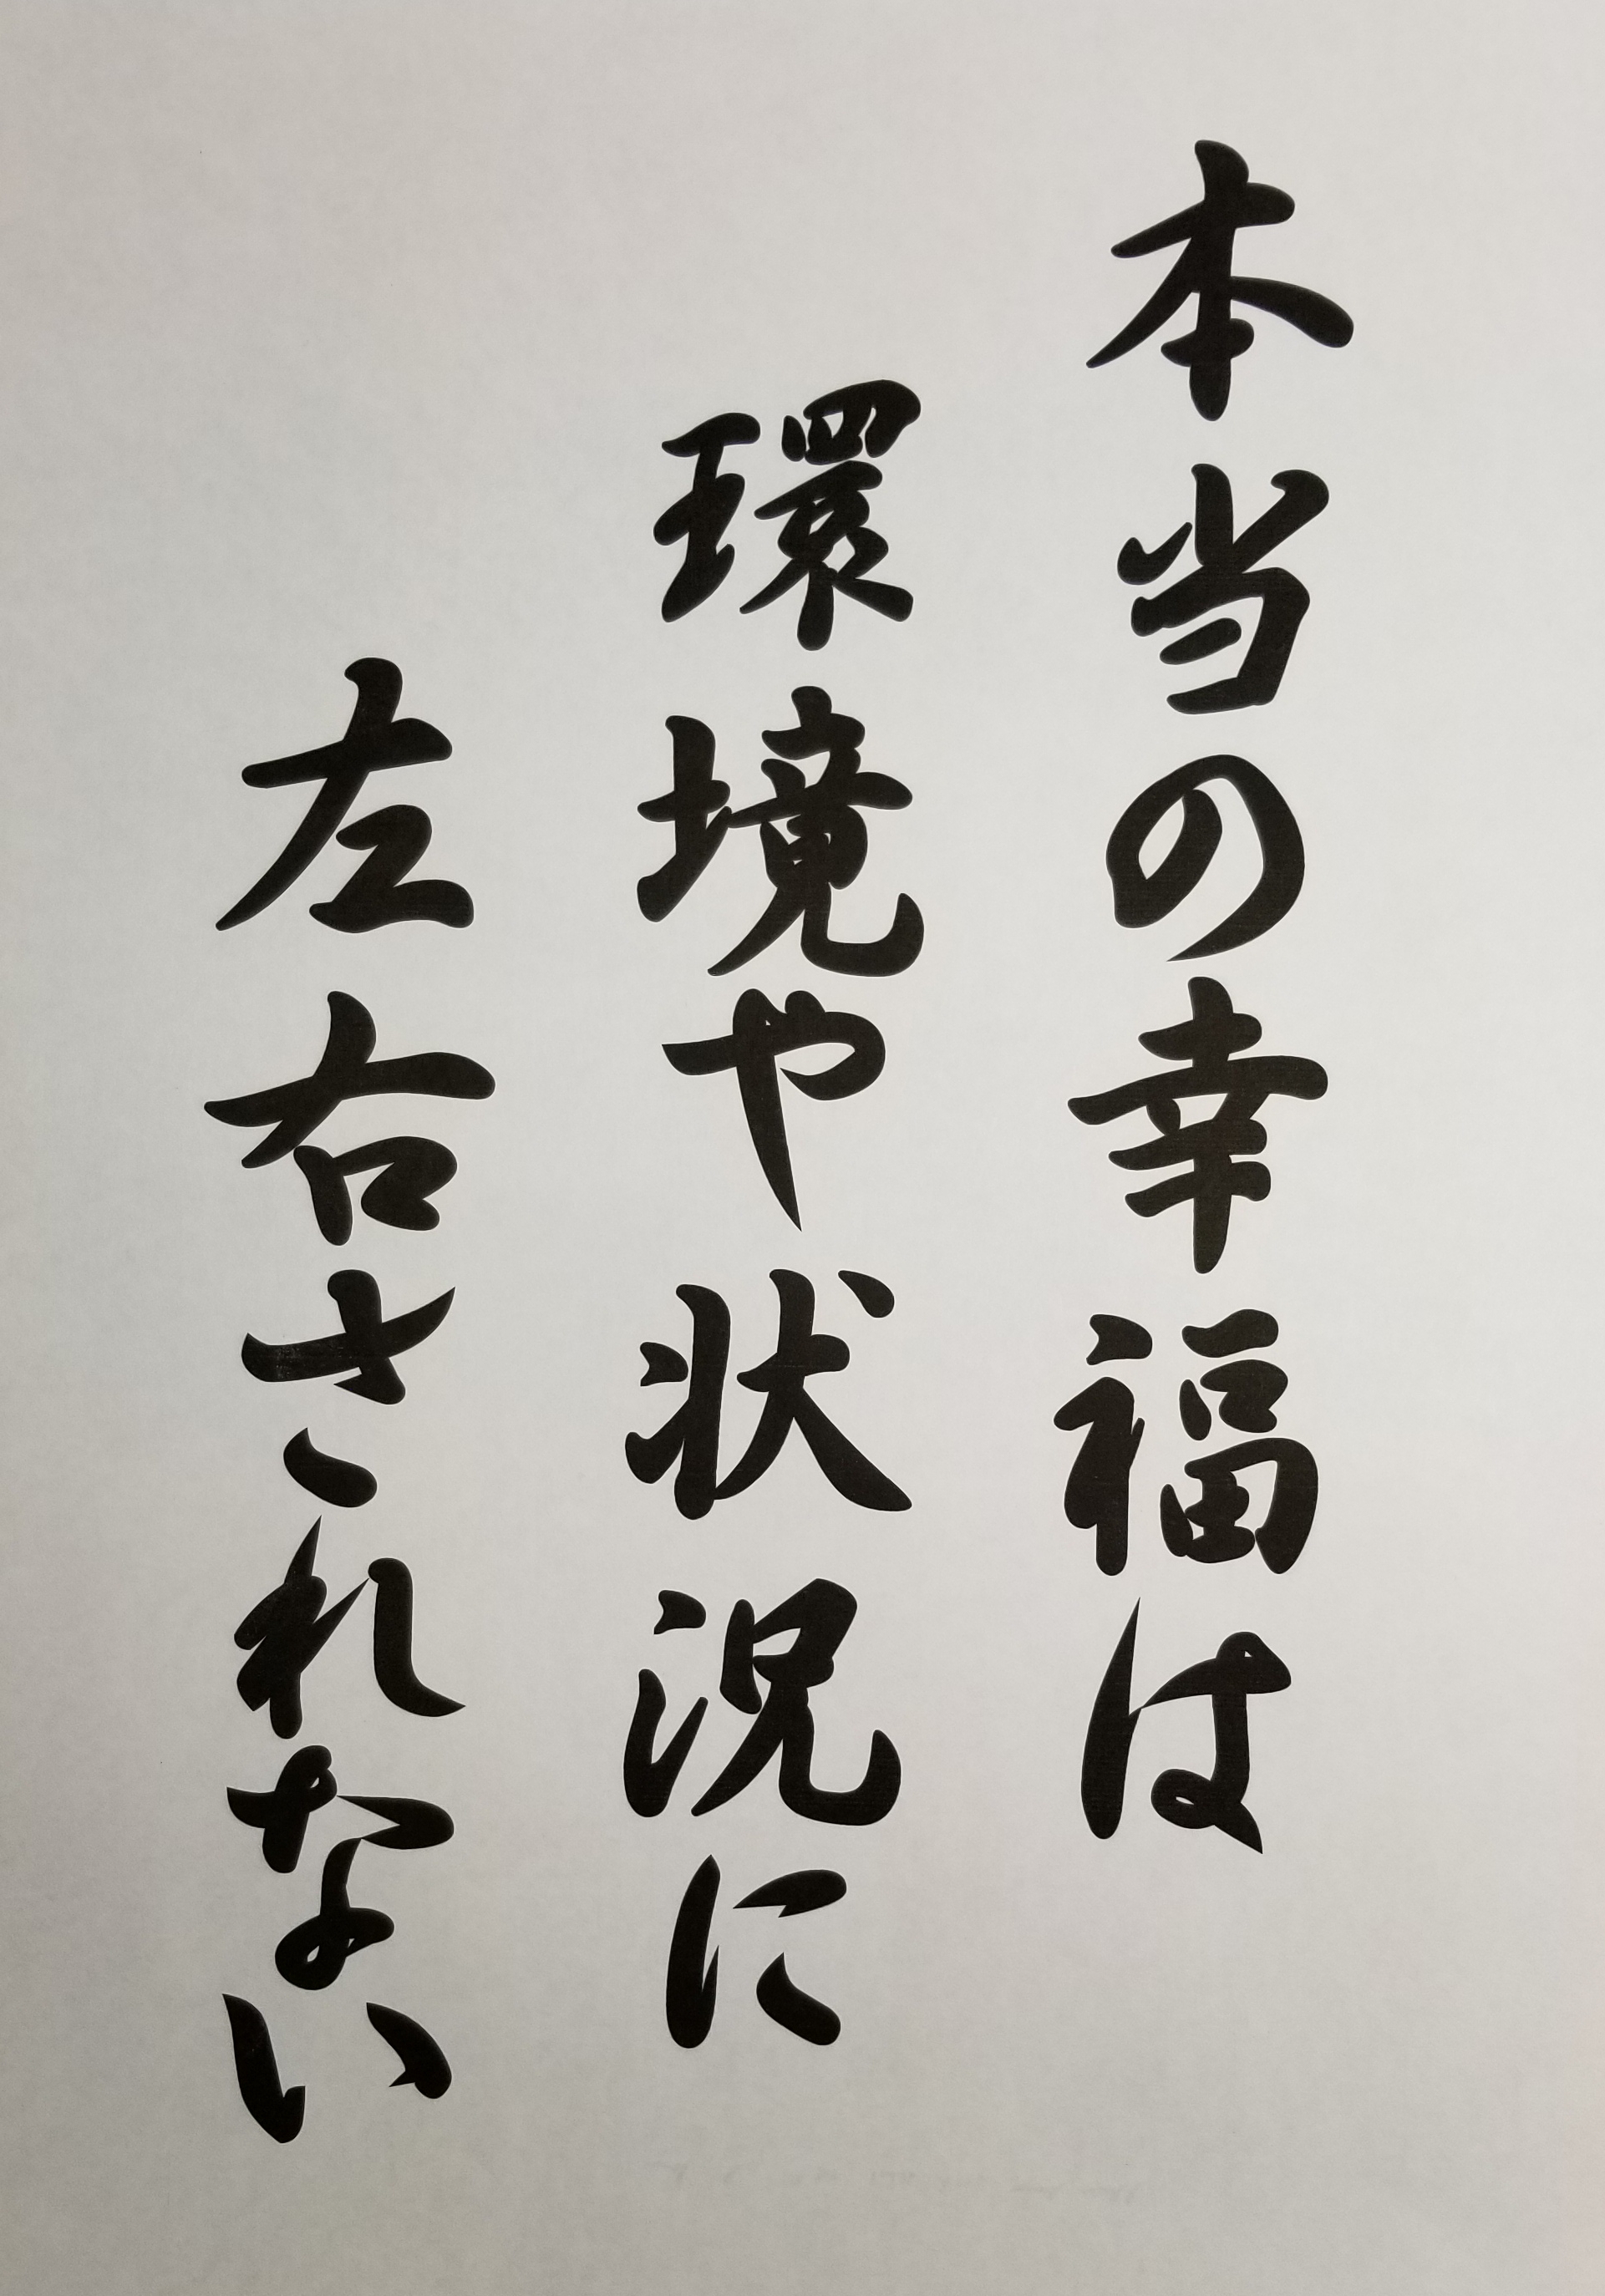 本当の幸福は
環境や状況に
左右されない